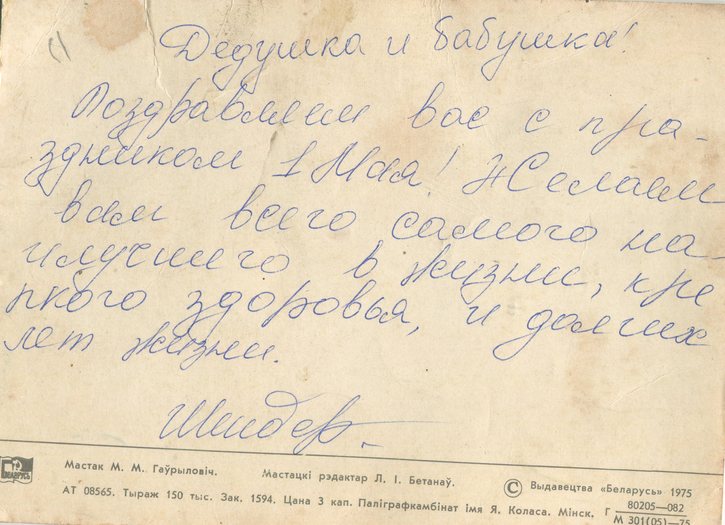 Дедушка и бабушка!
Поздравляем вас с пра-
здником 1 Мая! Желаем
вам всего самого на-
илучшего в жизни, кре
пкого здоровья, и долгих
лет жизни.
БЕЛАРУСЬ
Мастак М. М. Гаўрыловіч. Мастацкі рэдактар Л. І. Бетанаў. © Выдавецтва «Беларусь» 1975
АТ 08565. Тыраж 150 тыс. Зак. 1594. Цана 3 кап. Паліграфкамбінат імя Я. Коласа. Мінск. Г 80205—082
М 301(05)—75